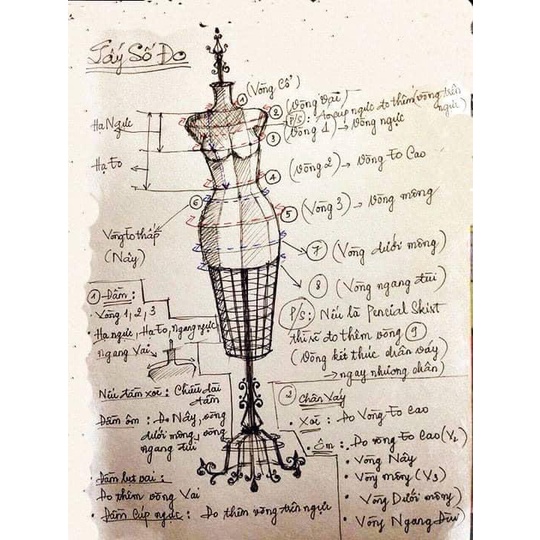 Lấy Số Đo
① (Vòng Cổ)
② (Vòng Vai)
P/S: Áo cúp ngực đo thêm (vòng trên ngực)
③ (Vòng 1) → Vòng ngực
Hạ Ngực
Hạ Eo
④ (Vòng 2) → Vòng Eo Cao
⑤ (Vòng 3) → Vòng mông
⑥
Vòng Eo thấp
(Nảy)
⑦ (Vòng dưới mông)
⑧ (Vòng ngang đùi)
P/S: Nếu là Pencial Skirt
thì sẽ đo thêm vòng ⑨
(Vòng kết thúc chân váy
→ ngay nhượng chân)
① Đầm:
• Vòng 1, 2, 3
• Hạ ngực, Hạ Eo, ngang ngực
• Ngang Vai
Nếu đầm xoè: Chiều dài
đầm
Đầm ôm: Đo Nảy, vòng
dưới mông, vòng
ngang đùi
• Đầm lệt vai:
Đo thêm vòng Vai
• Đầm Cúp ngực: Đo thêm vòng trên ngực
② Chân Váy
• Xoè: Đo Vòng Eo Cao
• Ôm: Đo vòng Eo Cao (V2)
• Vòng Nảy
• Vòng mông (V3)
• Vòng Dưới mông
• Vòng Ngang Đùi